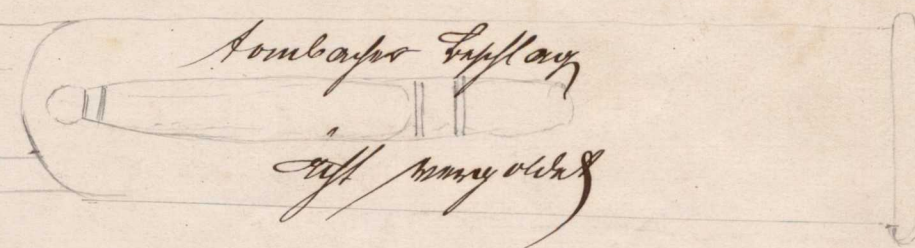 tombacher Beschlag
ächt vergoldet